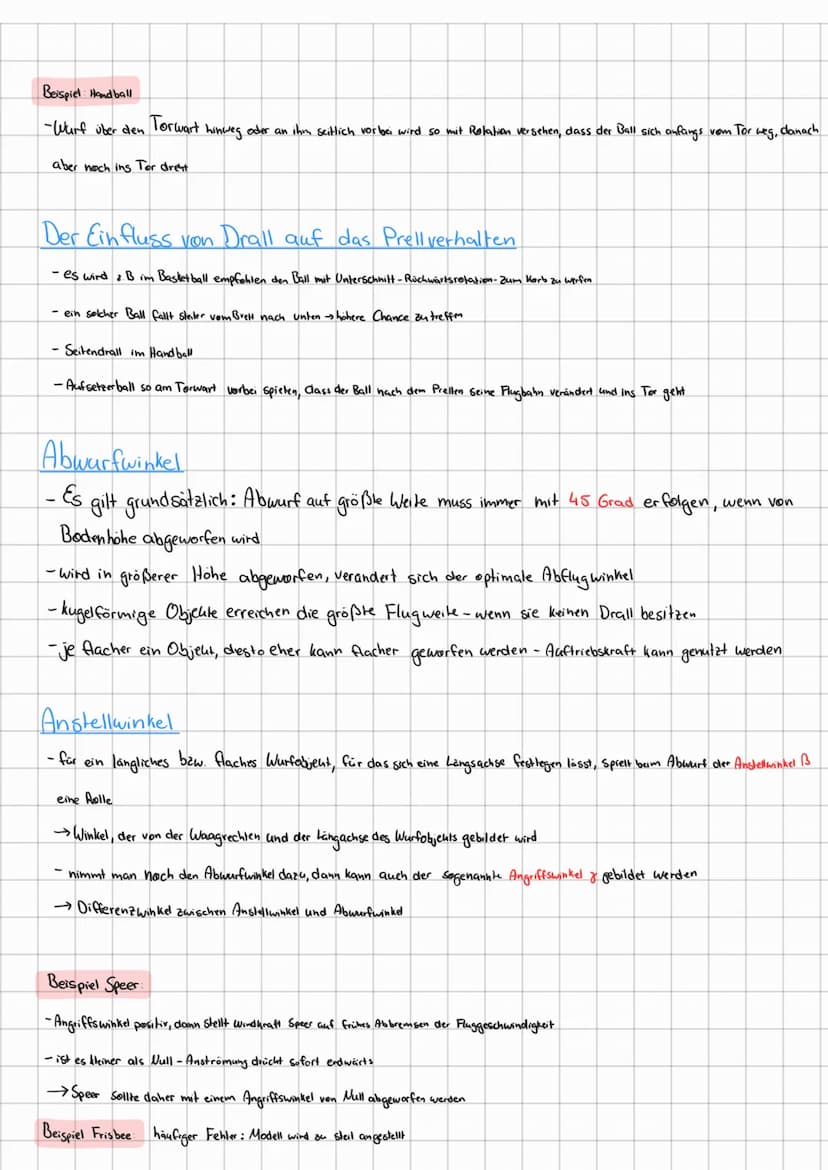 Beispiel: Handball
-Wurf über den Torwart hinweg oder an ihm seitlich vorbei wird so mit Rotation versehen, dass der Ball sich anfangs vom Tor weg, danach
aber noch ins Tor dreht
Der Einfluss von Drall auf das Prellverhalten
- es wird z B im Basketball empfohlen den Ball mit Unterschnitt-Rückwärtsrotation- zum Korb zu werfen
- ein solcher Ball fällt steiler vom Brett nach unten → höhere Chance zu treffen
- Seitendrall im Handball
- Aufsetzerball so am Torwart vorbei spielen, dass der Ball nach dem Prellen seine Flugbahn verändert und ins Tor geht
Abwurfwinkel
- Es gilt grundsätzlich: Abwurf auf größte Weite muss immer mit 45 Grad erfolgen, wenn von
Bodenhöhe abgeworfen wird
- wird in größerer Höhe abgeworfen, verändert sich der optimale Abflugwinkel
- kugelförmige Objekte erreichen die größte Flugweite - wenn sie keinen Drall besitzen
- je flacher ein Objekt, desto eher kann flacher geworfen werden - Auftriebskraft kann genutzt werden
Anstellwinkel
- für ein längliches bzw. flaches Wurfobjekt, für das sich eine Längsachse festlegen lässt, spielt beim Abwurf der Anstellwinkel β
eine Rolle
→ Winkel, der von der Waagrechten und der Längachse des Wurfobjekts gebildet wird
- nimmt man noch den Abwurfwinkel dazu, dann kann auch der sogenannte Angriffswinkel γ gebildet werden
→ Differenzwinkel zwischen Anstellwinkel und Abwurfwinkel
Beispiel Speer:
- Angriffswinkel positiv, dann stellt Windkraft Speer auf frühes Abbremsen der Fluggeschwindigkeit
- ist es kleiner als Null - Anströmung drückt sofort erdwärts
→ Speer sollte daher mit einem Angriffswinkel von Null abgeworfen werden
Beispiel Frisbee: häufiger Fehler: Modell wird zu steil angestellt